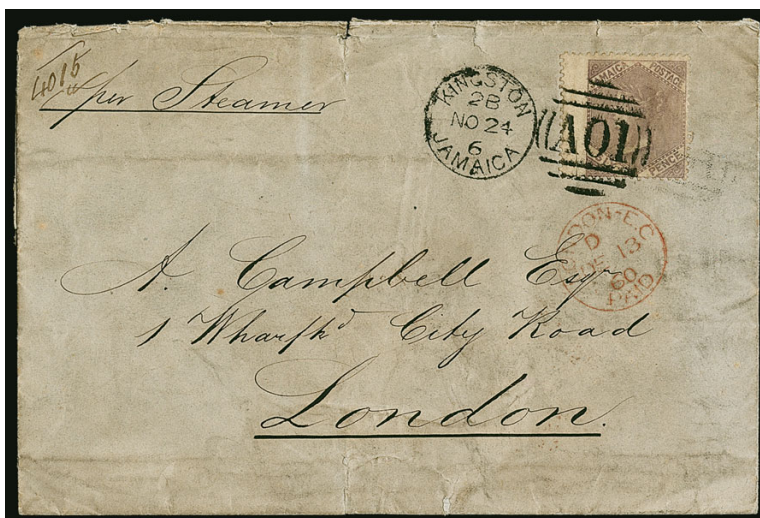 4015
per Steamer
KINGSTON
2B
NO 24
6
JAMAICA
JAMAICA POSTAGE
A01
PENCE
DON-E.C
D
DE 13
60
PAID
A. Campbell Esqr
1 Wharf Rd City Road
London.